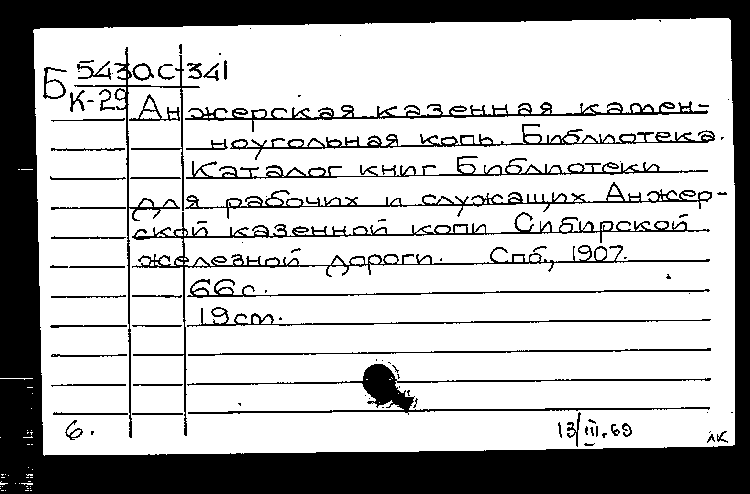 Б 5430С-341
К-29
Анжерская казенная камен-
ноугольная копь. Библиотека.
Каталог книг Библиотеки
для рабочих и служащих Анжер-
ской казенной копи Сибирской
железной дороги. Спб., 1907.
66 с.
19 cm.
6.
13/III.69
ЛК